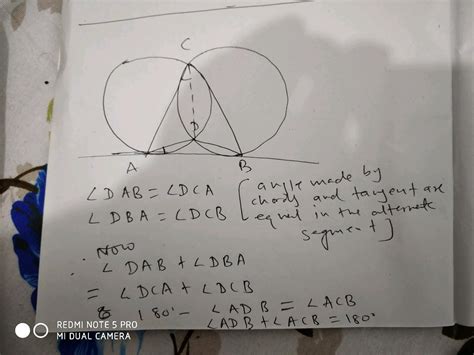 C
D
A B
∠DAB = ∠DCA [angle made by
chords and tangent are
∠DBA = ∠DCB equal in the alternate
segment]
Now
∠DAB + ∠DBA
= ∠DCA + ∠DCB
180° - ∠ADB = ∠ACB
∠ADB + ∠ACB = 180°
REDMI NOTE 5 PRO
MI DUAL CAMERA